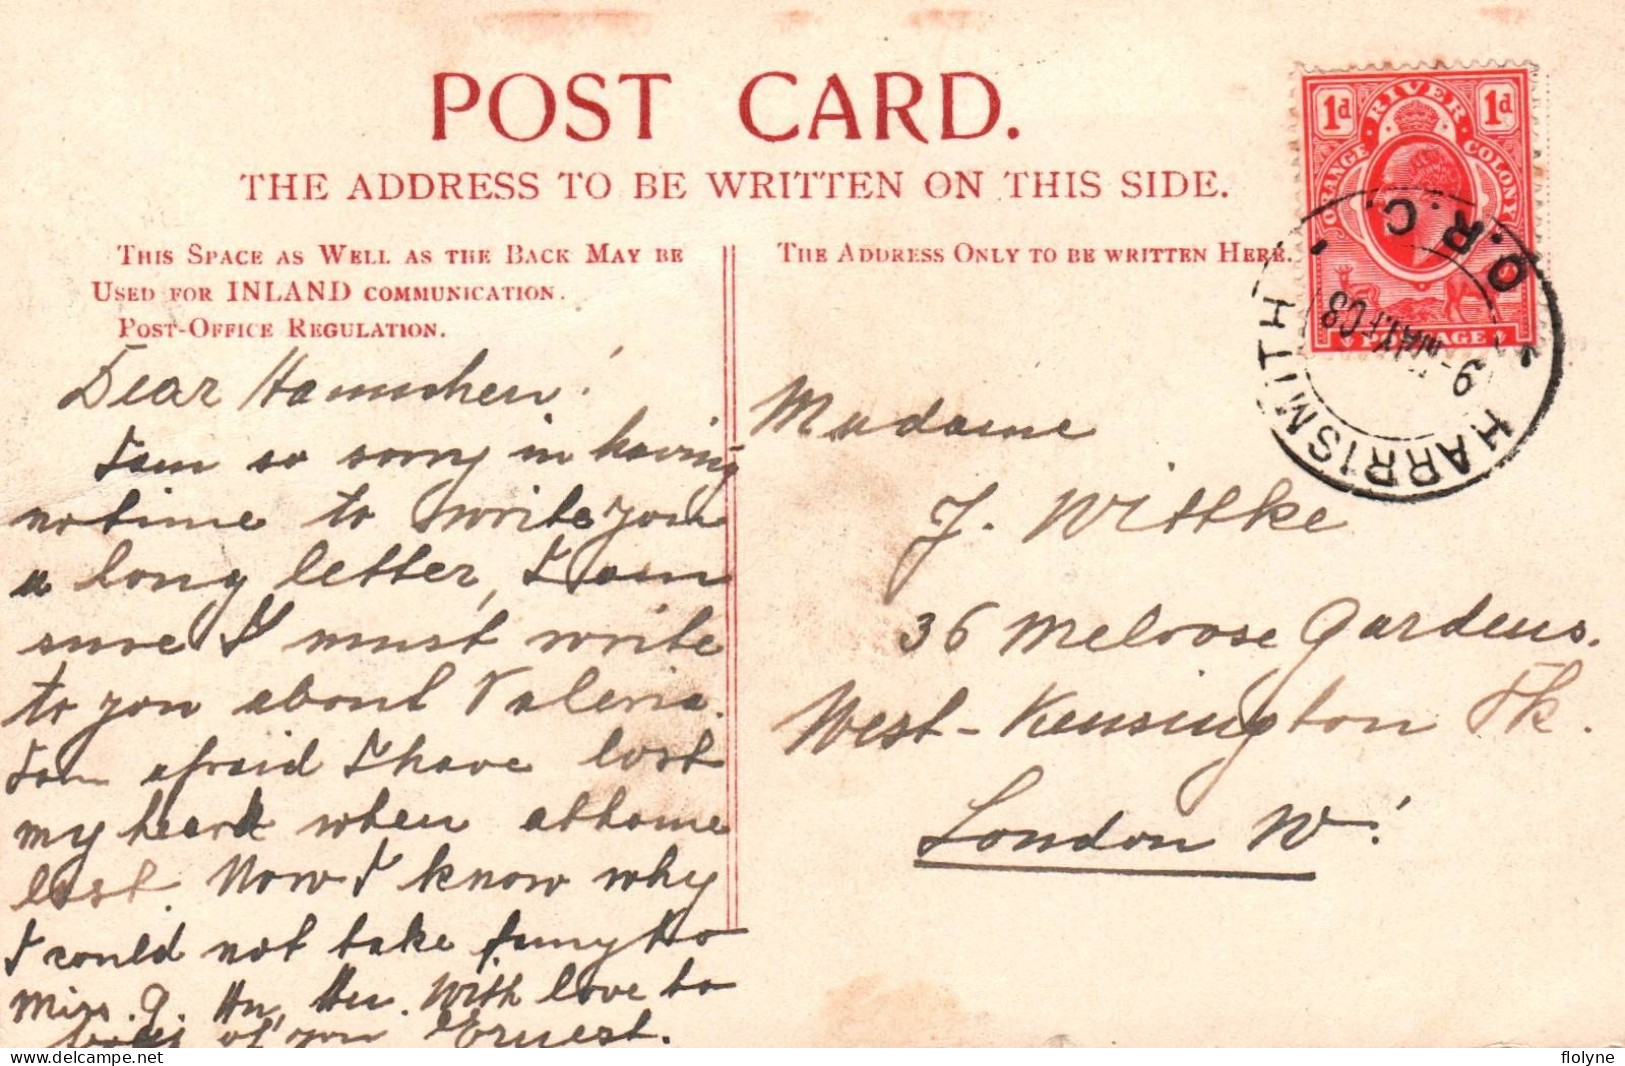 POST CARD.
THE ADDRESS TO BE WRITTEN ON THIS SIDE.
THIS SPACE AS WELL AS THE BACK MAY BE
USED FOR INLAND COMMUNICATION.
POST-OFFICE REGULATION.
THE ADDRESS ONLY TO BE WRITTEN HERE.
1d ORANGE · RIVER · COLONY 1d
POSTAGE
HARRISMITH · O.R.C.
9 MAY 08
Dear
I am so sorry in having
no time to write you
a long letter, I am
sure I must write
to you about Valeria.
I am afraid I have lost
my heart when at home
last. Now I know why
I could not take to
Miss. With love to
of you Ernest.
Madame
J. Wittke
36 Meloose Gardens.
West-Kensington Pk.
London W.
flolyne